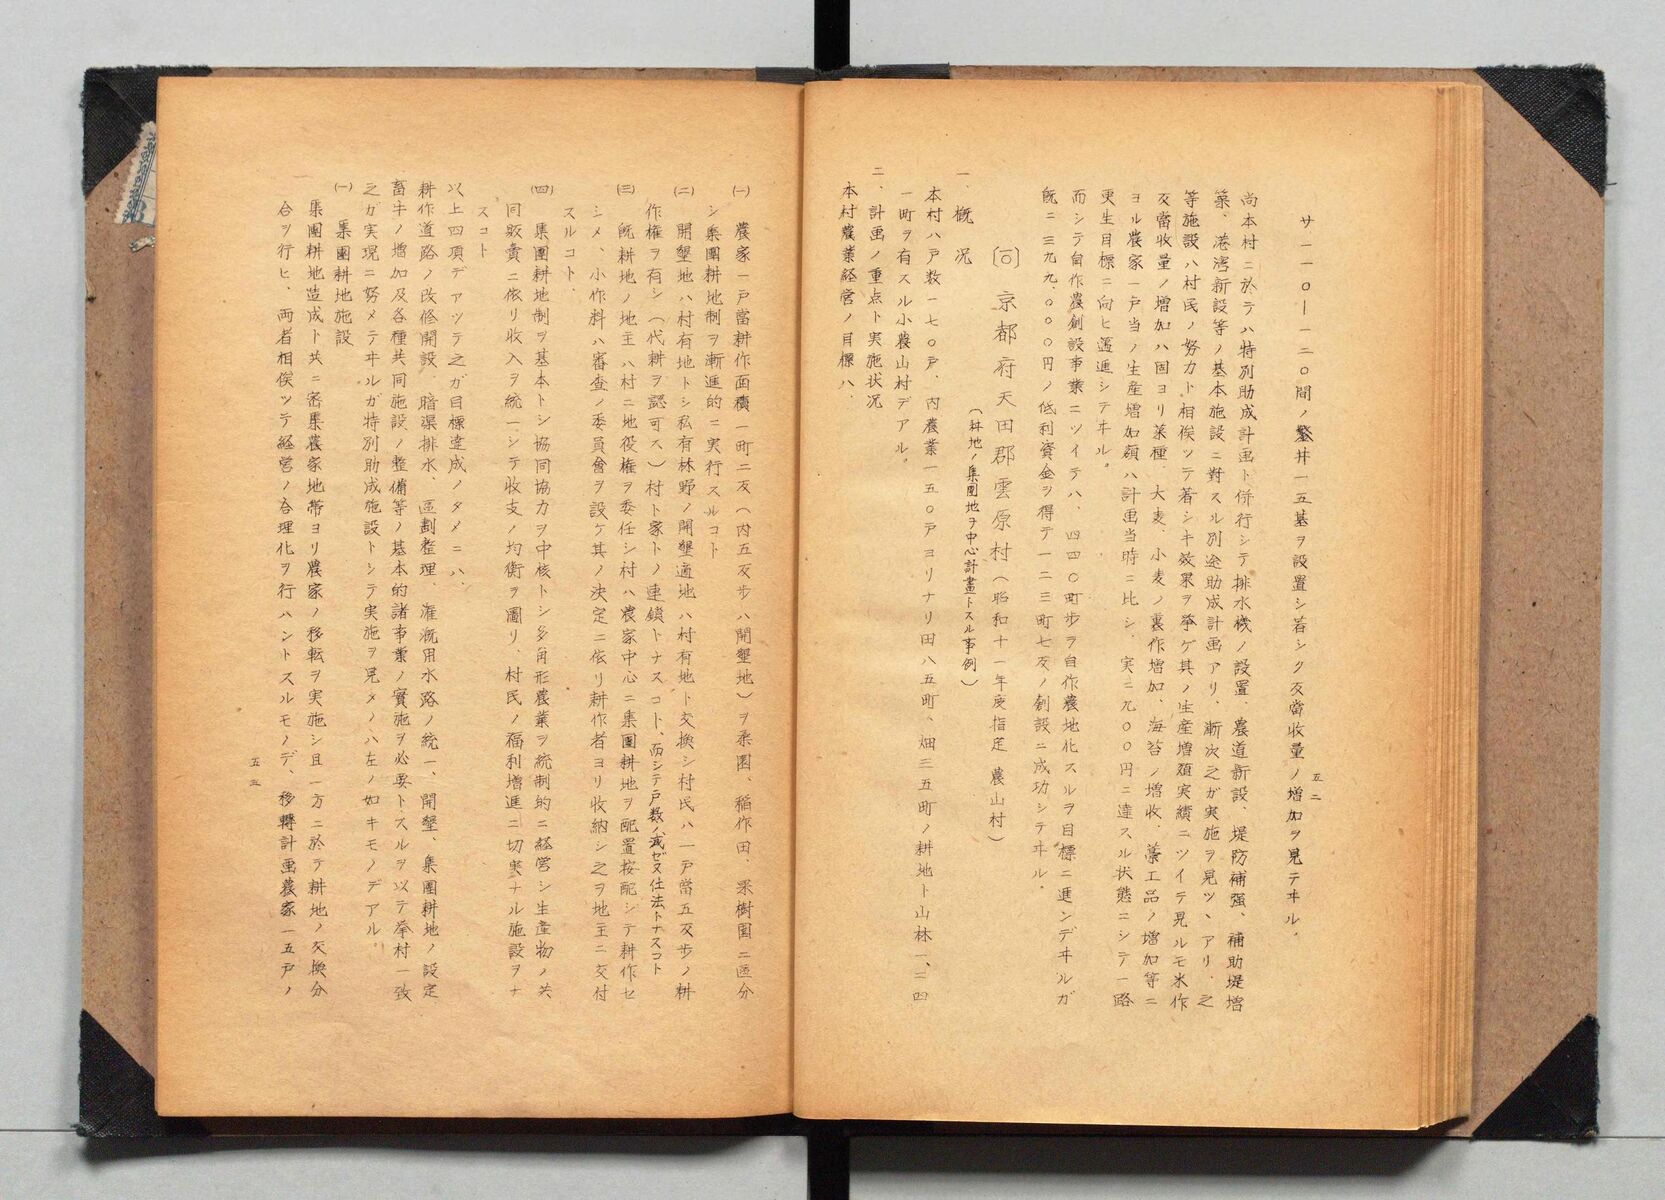 五二
サ一一〇―一二〇間ノ鑿井一五基ヲ設置シ着シク反當收量ノ増加ヲ見テヰル。
尚本村ニ於テハ特別助成計画ト併行シテ排水機ノ設置、農道新設、堤防補强、補助堤増
築、港湾新設等ノ基本施設ニ對スル別途助成計画アリ、漸次之ガ実施ヲ見ツヽアリ、之
等施設ハ村民ノ努力ト相俟ツテ着シキ效果ヲ挙ゲ其ノ生産増額実績ニツイテ見ルモ米作
反當收量ノ増加ハ固ヨリ菜種、大麦、小麦ノ裏作増加、海苔ノ増收、藁工品ノ増加等ニ
ヨル農家一戸当ノ生産増加額ハ計画当時ニ比シ、実ニ九〇〇円ニ達スル状態ニシテ一路
更生目標ニ向ヒ邁進シテヰル。
而シテ自作農創設事業ニツイテハ、四四〇町歩ヲ自作農地化スルヲ目標ニ進ンデヰルガ
既ニ三九九、〇〇〇円ノ低利資金ヲ得テ一二三町七反ノ創設ニ成功シテヰル。
京都府天田郡雲原村(昭和十一年度指定 農山村)
(耕地ノ集團地ヲ中心計畫トスル事例)
一、概況
本村ハ戸数一七〇戸、内農業一五〇戸ヨリナリ田八五町、畑三五町ノ耕地ト山林一、二四
一町ヲ有スル小農山村デアル。
二、計画ノ重点ト実施状況
本村農業経営ノ目標ハ、
(一) 農家一戸當耕作面積一町二反(内五反歩ハ開墾地)ヲ桑園、稲作田、果樹園ニ區分
シ集團耕地制ヲ漸進的ニ実行スルコト
(二) 開墾地ハ村有地トシ私有林野ノ開墾適地ハ村有地ト交換シ村民ハ一戸當五反歩ノ耕
作権ヲ有シ(代耕ヲ認可ス)村ト家トノ連鎖トナスコト、而シテ戸数ノ減ゼヌ仕法トナスコト
(三) 既耕地ノ地主ハ村ニ地役権ヲ委任シ村ハ農家中心ニ集團耕地ヲ配置按配シテ耕作セ
シメ、小作料ハ審査ノ委員會ヲ設ケ其ノ決定ニ依リ耕作者ヨリ收納シ之ヲ地主ニ交付
スルコト、
(四) 集團耕地制ヲ基本トシ協同協力ヲ中核トシ多角形農業ヲ統制的ニ経営シ生産物ノ共
同販賣ニ依リ收入ヲ統一シテ收支ノ均衡ヲ圖リ、村民ノ福利増進ニ切実ナル施設ヲナ
スコト
以上四項デアツテ之ガ目標達成ノタメニハ、
耕作道路ノ改修開設、暗渠排水、區劃整理、灌漑用水路ノ統一、開墾、集團耕地ノ設定
畜牛ノ増加及各種共同施設ノ整備等ノ基本的諸事業ノ實施ヲ必要トスルヲ以テ挙村一致
之ガ実現ニ努メテヰルガ特別助成施設トシテ実施ヲ見タノハ左ノ如キモノデアル。
(一) 集團耕地施設
集團耕地造成ト共ニ密集農家地帯ヨリ農家ノ移転ヲ実施シ且一方ニ於テ耕地ノ交換分
合ヲ行ヒ、両者相俟ツテ経営ノ合理化ヲ行ハントスルモノデ、移轉計画農家一五戸ノ
五三